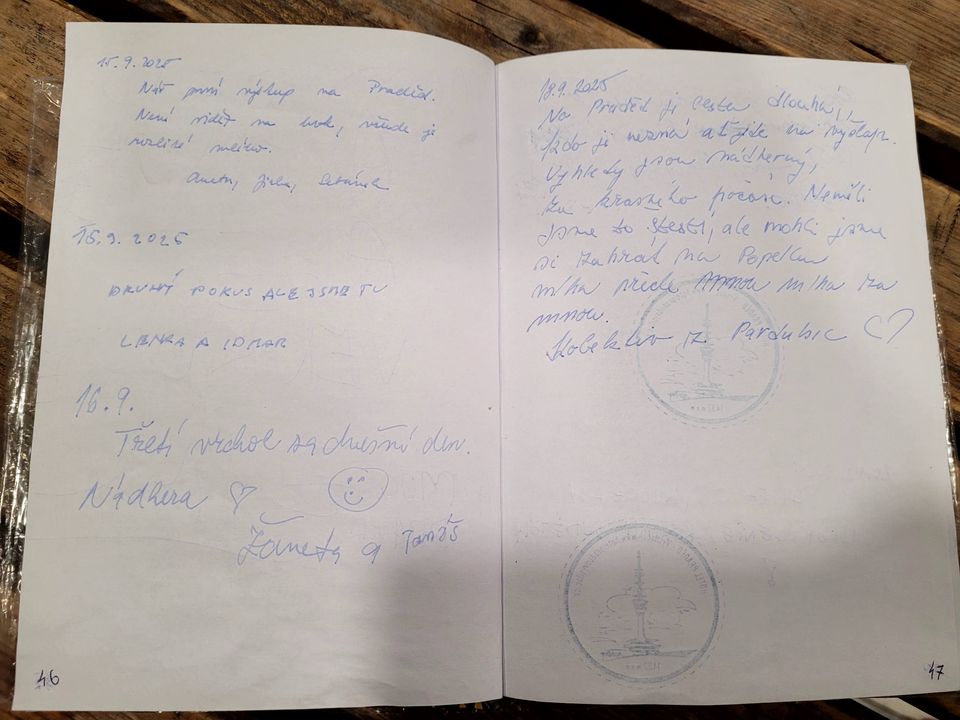 15.9.2025
Náš první výstup na Praděd.
Není vidět na krok, všude je
rozlité mléko.
Aneta, Jirka,
15.9.2025
DRUHÝ POKUS ALE JSME TU
LENKA A
16.9.
Třetí vrchol za dnešní den.
Nádhera ♡
Žaneta a Tomáš
46
18.9.2025
Na Praděd je cesta dlouhá,
kdo ji nezná ať jde na výšlap.
Výhledy jsou nádherný,
za krásného počasí. Neměli
jsme to štestí, ale mohli jsme
si zahrát na Popelku
mlha přede mnou mlha za
mnou.
Kolektiv z Pardubic ♡
47